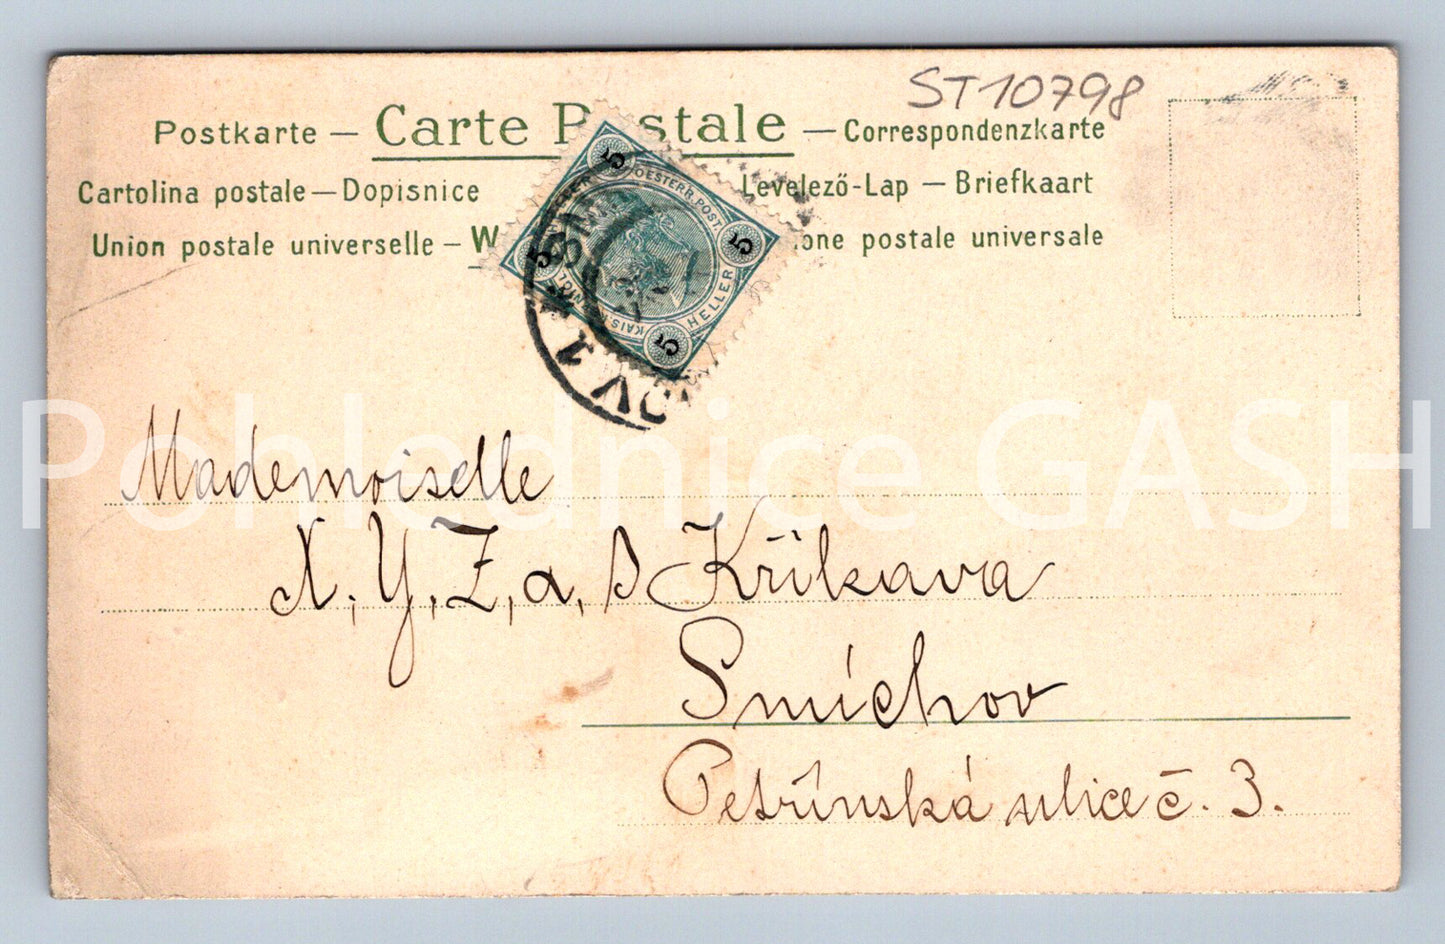 ST10798
Postkarte — Carte P stale — Correspondenzkarte
Cartolina postale — Dopisnice Levelező-Lap — Briefkaart
Union postale universelle — W one postale universale
5 OESTERR. POST. 5 HELLER 5 KAIS. 5
SM OV 1
Pohlednice GASH
Mademoiselle
X, Y, Z, a, B Křikava
Smíchov
Petřínská ulice č. 3.